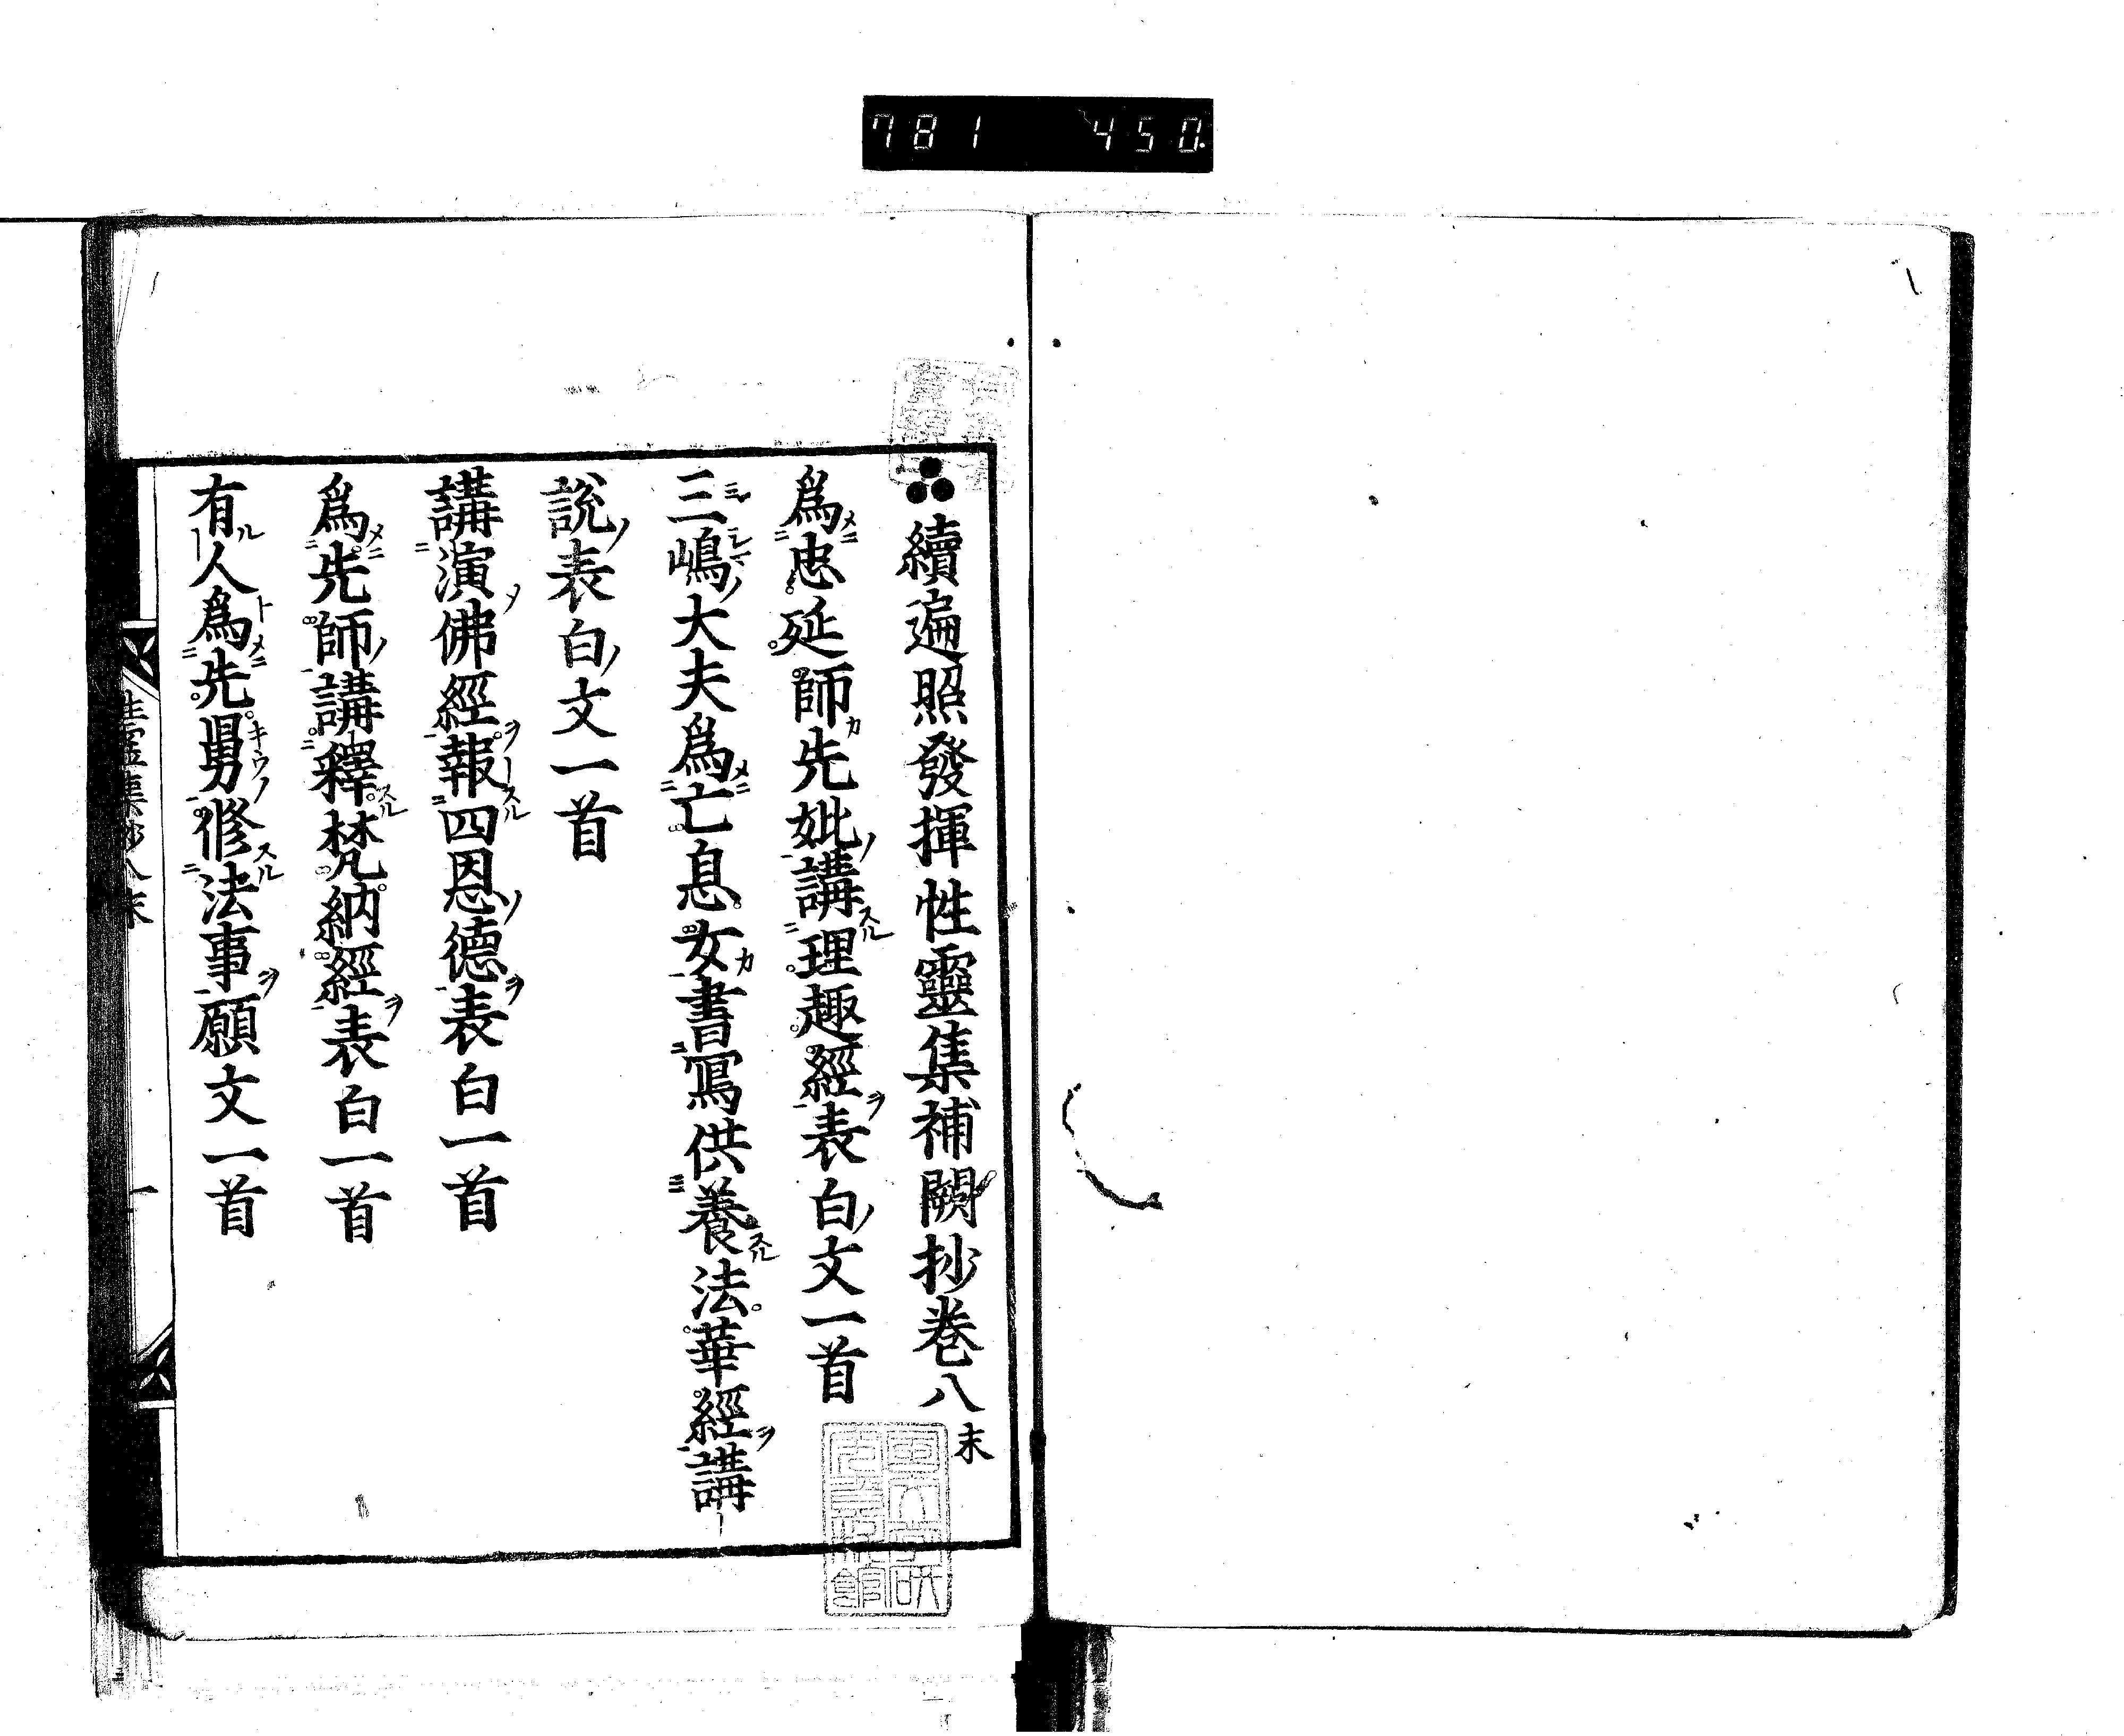 781 450
續遍照發揮性靈集補闕抄卷八末
爲忠延師先妣講理趣經表白文一首
三嶋大夫爲亡息女書寫供養法華經講
說表白文一首
講演佛經報四恩德表白一首
爲先師講釋梵納經表白一首
有人爲先舅修法事願文一首